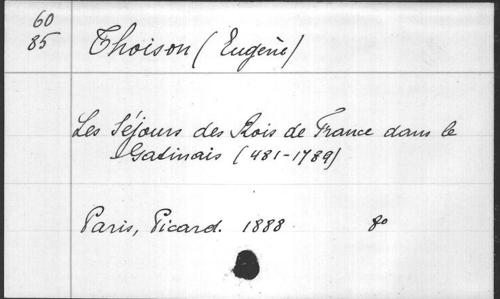 60
85
Thoison (Eugène)
Les Séjours des Rois de France dans le
Gatinais (481-1789)
Paris, Picard. 1888 8o